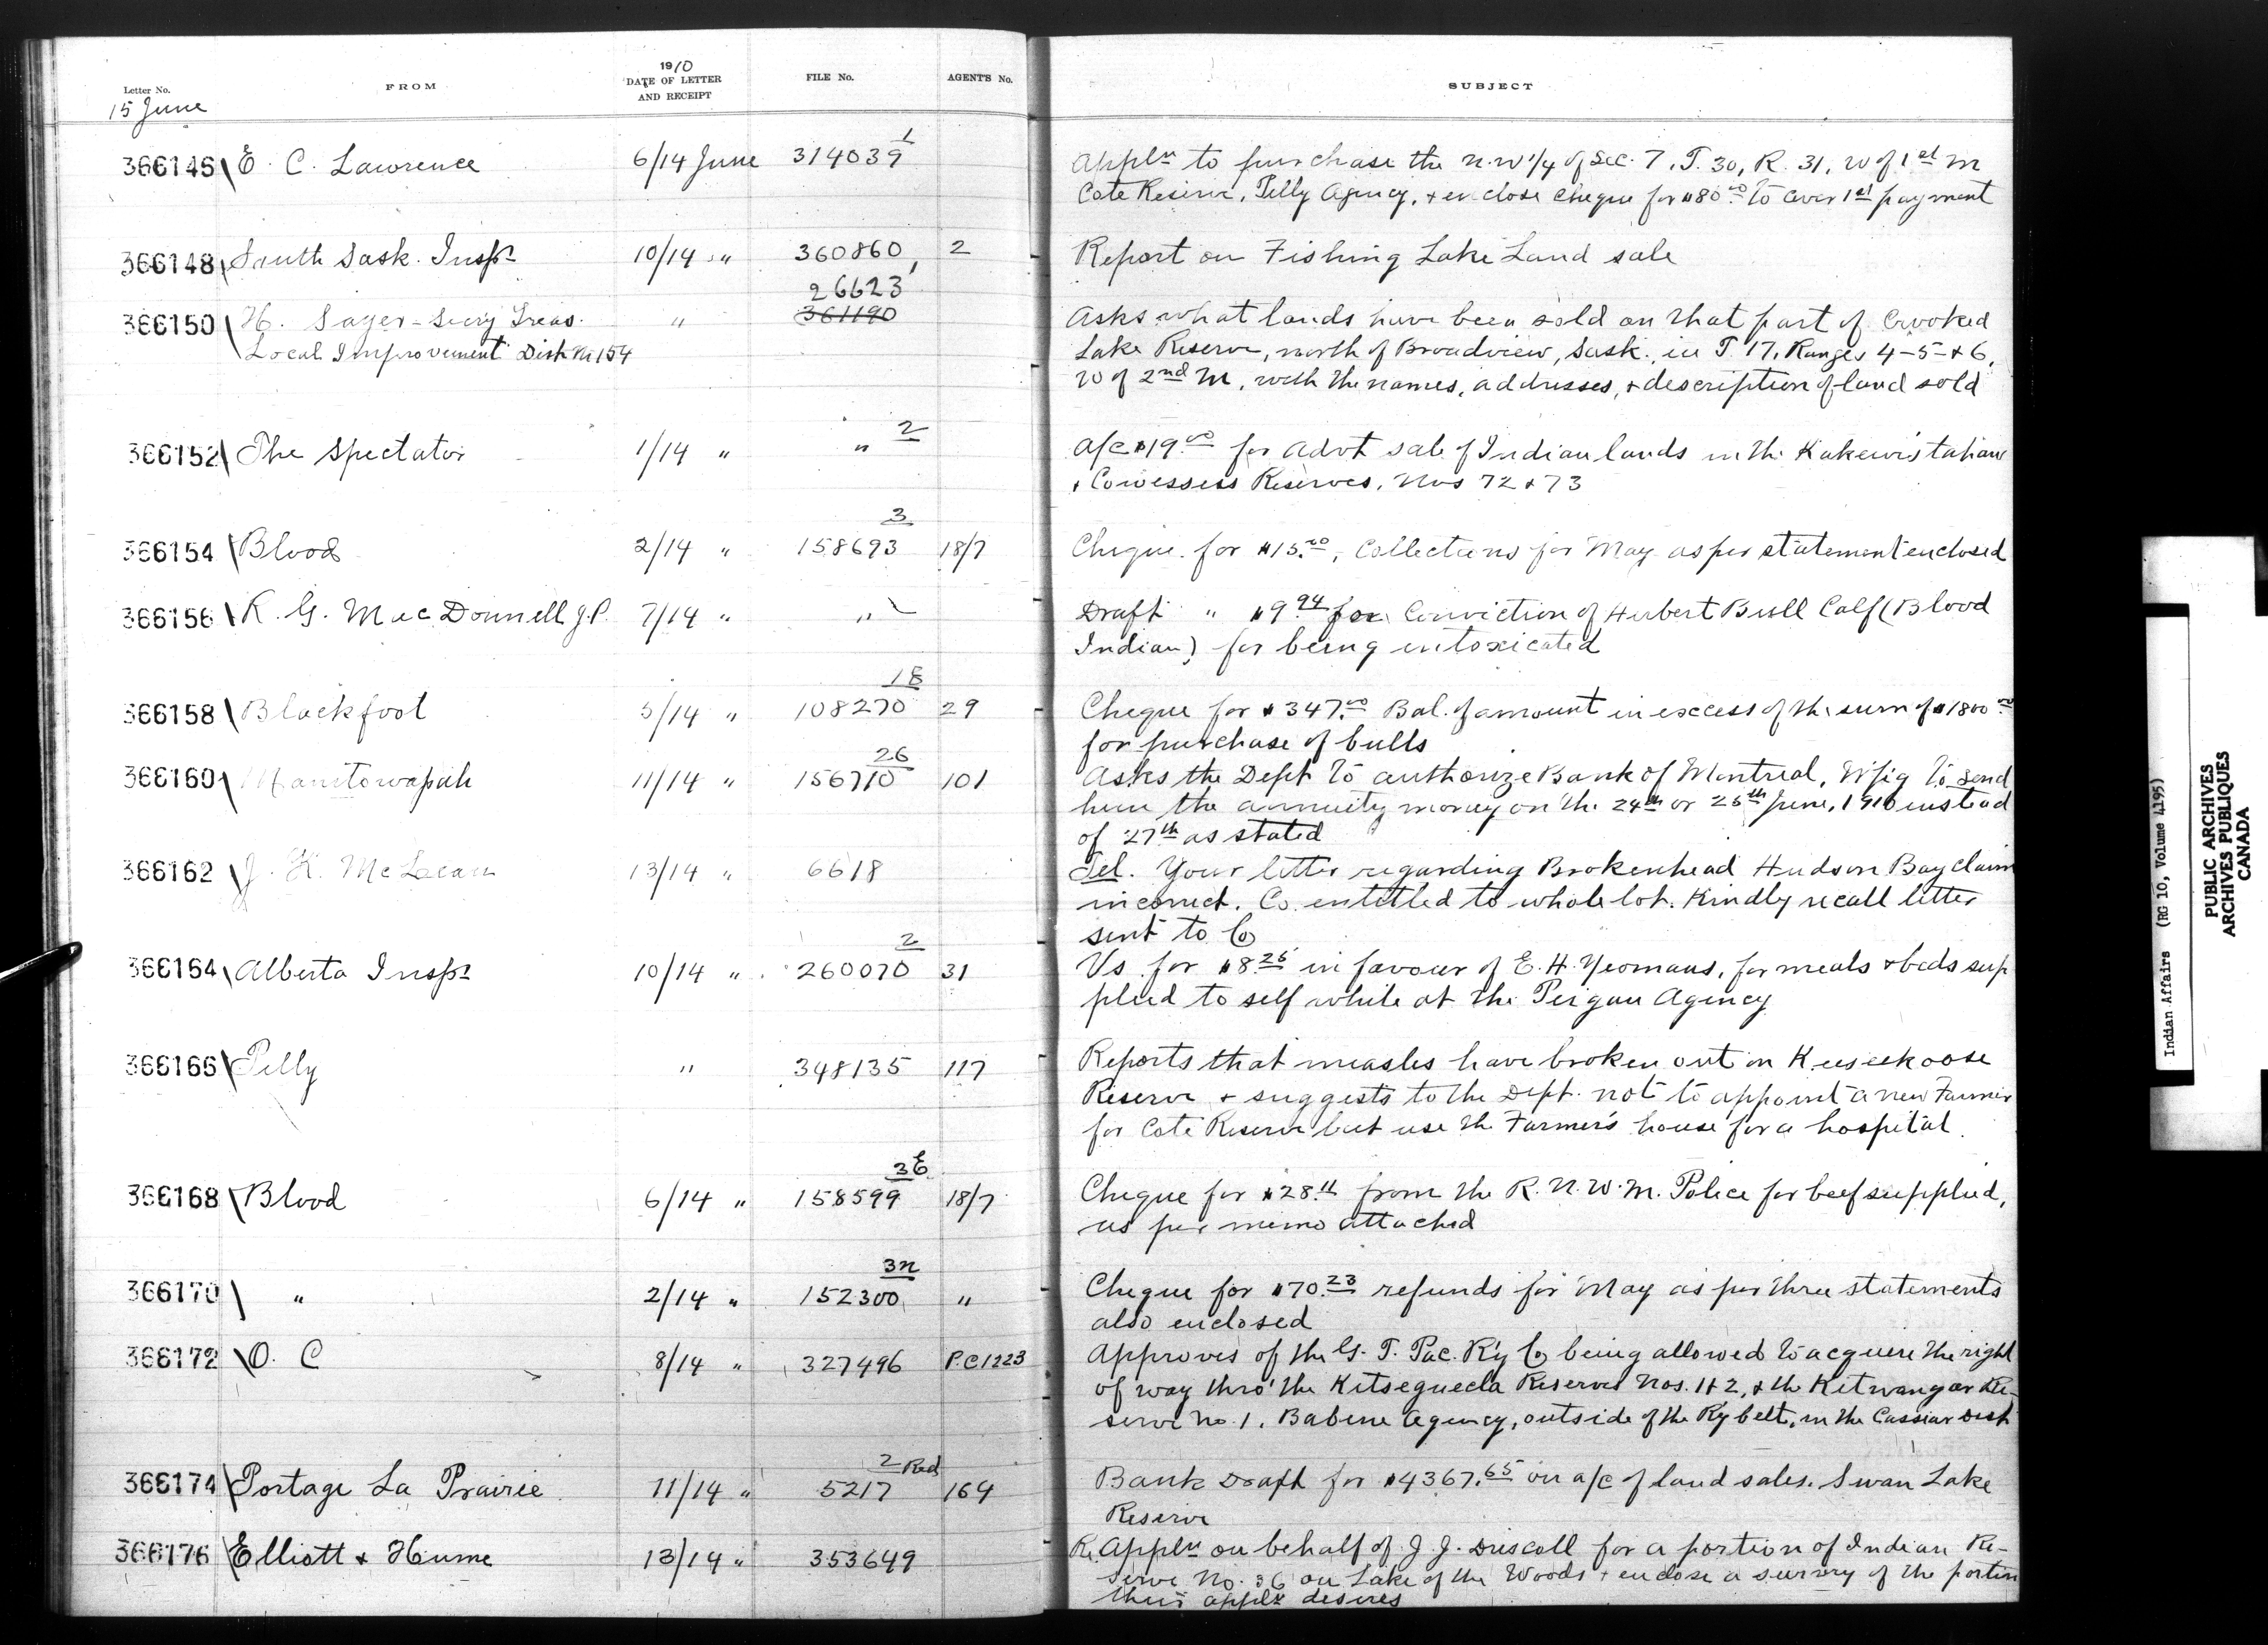 1910
Letter No. FROM DATE OF LETTER AND RECEIPT FILE No. AGENT'S No. SUBJECT
15 June
1
366146 E. C. Lawrence 6/14 June 314039 Appln to purchase the N.W 1/4 of Sec. 7, T. 30, R. 31, W of 1st M
Cote Reserve, Pelly Agency, + enclose cheque for $80.00 to cover 1st payment
366148 South Sask. Inspr 10/14 " 360860 2 Report on Fishing Lake Land sale
26623
366150 H. Sager - Secy Treas. " 361190 Asks what lands have been sold on that part of Crooked
Local Improvement Dist. No 154 Lake Reserve, north of Broadview, Sask. in T. 17, Ranges 4-5-+6,
W of 2nd M, with the names, addresses, + description of land sold
2
366152 The Spectator 1/14 " " a/c $19.00 for advt sale of Indian lands in the Kakewistahaw
+ Cowessess Reserves, Nos 72 + 73
3
366154 Blood 2/14 " 158693 18/7 Cheque for $15.00, Collections for May as per statement enclosed
366156 K. G. MacDonnell J.P. 7/14 " " Draft " $9.94 for Conviction of Herbert Bull Calf (Blood
Indian) for being intoxicated
18
366158 Blackfoot 5/14 " 108270 29 Cheque for $347.00 Bal. of amount in excess of the sum of $1800.00
for purchase of bulls
26
366160 Manitowapah 11/14 " 156710 101 Asks the Dept to authorize Bank of Montreal, W'pig to send
him the annuity money on the 24th or 25th June, 1910 instead
of 27th as stated
366162 J. K. McLean 13/14 " 6618 Tel. Your letter regarding Brokenhead Hudson Bay claim
incorrect. Co. entitled to whole lot. Kindly recall letter
sent to Co
2
366164 Alberta Inspr 10/14 " 260070 31 Vs for $8.25 in favour of E. H. Yeomans, for meals + beds sup
plied to self while at the Peigan Agency
366166 Pelly " 348135 117 Reports that measles have broken out on Keeseekoose
Reserve + suggests to the Dept. not to appoint a new Farmer
for Cote Reserve but use the Farmer's house for a hospital.
3E
366168 Blood 6/14 " 158599 18/7 Cheque for $28.11 from the R. N. W. M. Police for beef supplied,
as per memo attached
3n
366170 " 2/14 " 152300 " Cheque for $70.23 refunds for May as per three statements
also enclosed
366172 O. C 8/14 " 327496 P.C 1223 Approves of the G. T. Pac. Ry Co being allowed to acquire the right
of way thro' the Kitseguecla Reserves Nos. 1 + 2, + the Kitwangar Re-
serve No. 1, Babine Agency, outside of the Ry belt, in the Cassiar Dist
2 Red
366174 Portage La Prairie 11/14 " 5217 164 Bank Draft for $4367.65 on a/c of land sales. Swan Lake
Reserve
366176 Elliott + Hume 13/14 " 353649 Re. Appln on behalf of J. J. Driscoll for a portion of Indian Re-
serve No. 36 on Lake of the Woods + enclose a survey of the portion
their applt desires
Indian Affairs (RG 10, Volume 4195)
PUBLIC ARCHIVES
ARCHIVES PUBLIQUES
CANADA